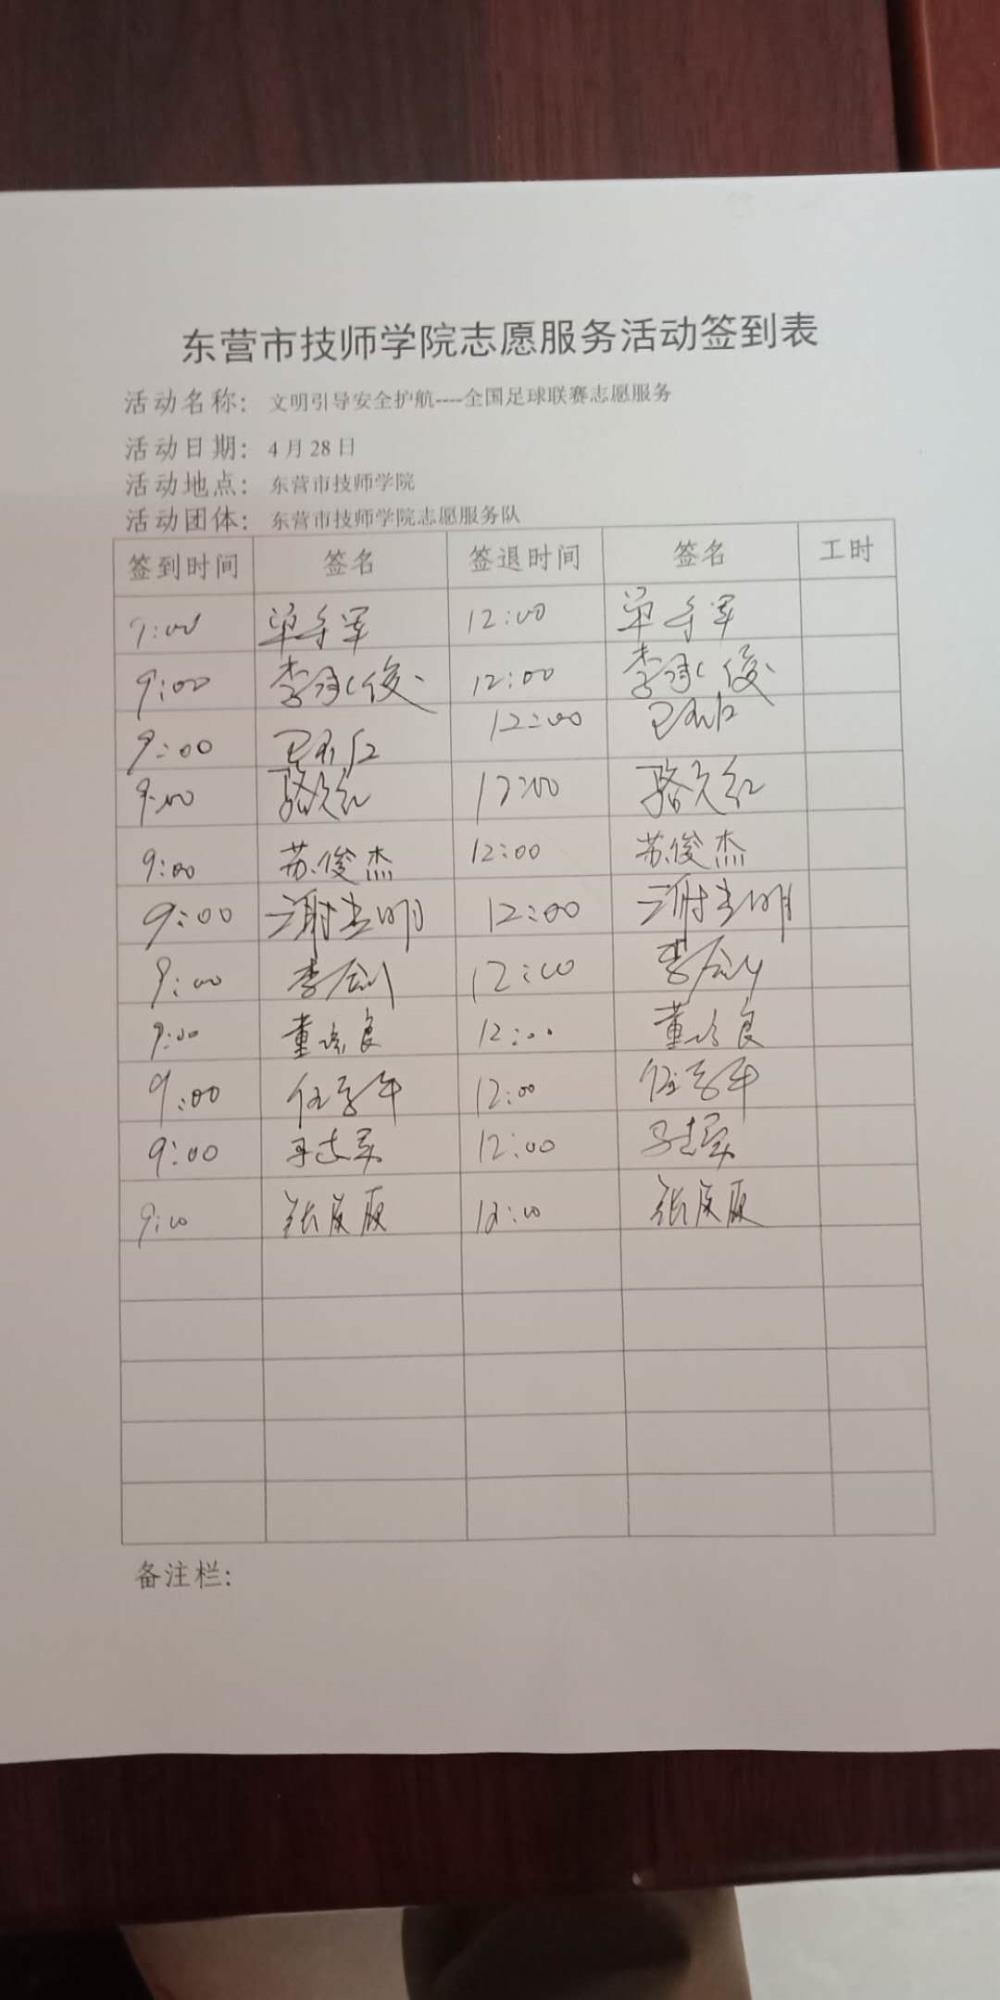 东营市技师学院志愿服务活动签到表
活动名称：文明引导安全护航----全国足球联赛志愿服务
活动日期：4月28日
活动地点：东营市技师学院
活动团体：东营市技师学院志愿服务队
签到时间 签名 签退时间 签名 工时
9:00 单军 12:00 单军
9:00 李承俊 12:00 李承俊
9:00 12:00
9:00 骆文红 12:00 骆文红
9:00 苏俊杰 12:00 苏俊杰
9:00 谢明 12:00 谢明
9:00 李 12:00 李
9:00 董良 12:00 董良
9:00 任 12:00 任
9:00 12:00
9:00 张 12:00 张
备注栏：